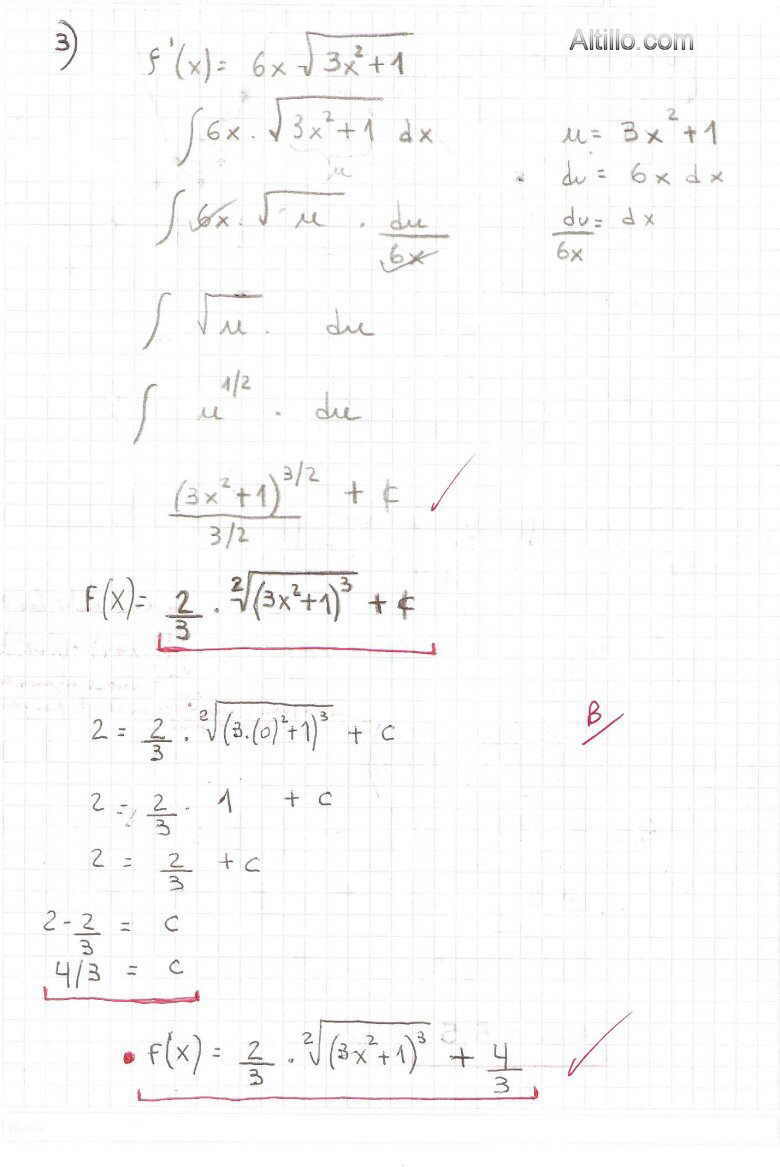 3)
Altillo.com
f'(x) = 6x √(3x²+1)
∫ 6x · √(3x²+1) dx
u
u = 3x²+1
du = 6x dx
du/6x = dx
∫ 6x · √u · du/6x
∫ √u · du
∫ u^(1/2) · du
(3x²+1)^(3/2) / 3/2 + C
F(x) = 2/3 · ²√((3x²+1)³) + C
2 = 2/3 · ²√((3.(0)²+1)³) + C
B
2 = 2/3 · 1 + C
2 = 2/3 + C
2 - 2/3 = C
4/3 = C
• f(x) = 2/3 · ²√((3x²+1)³) + 4/3